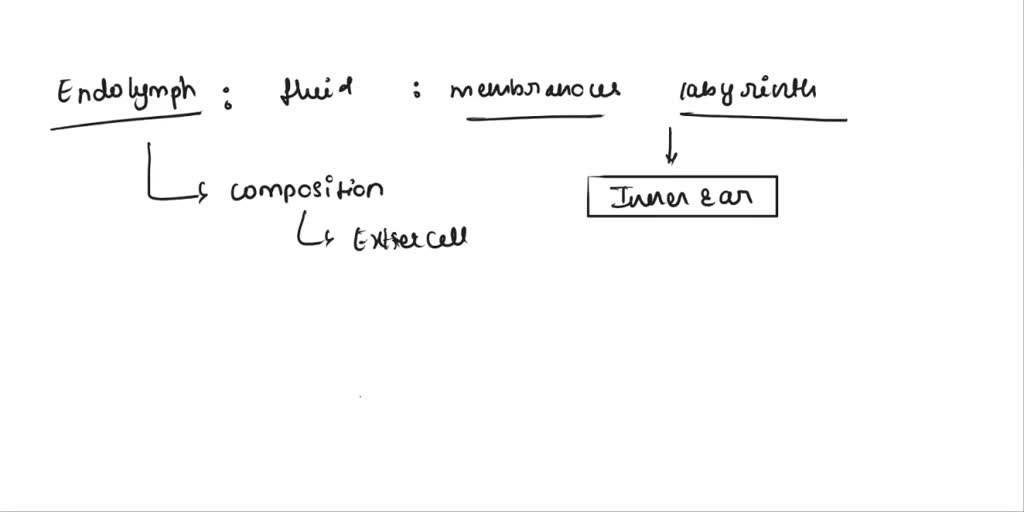 Endolymph : fluid : membranous labyrinth
composition
Inner ear
Extracell